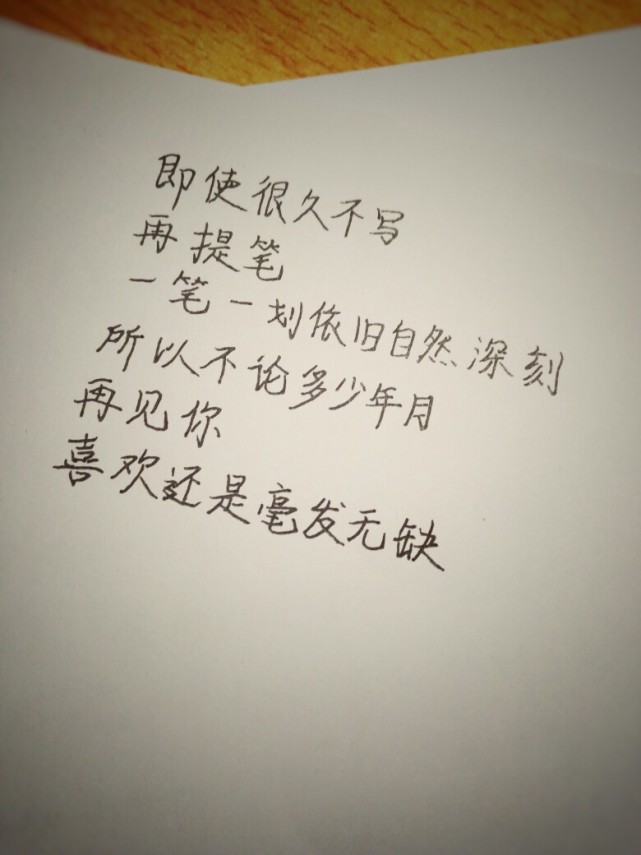 即使很久不写
再提笔
一笔一划依旧自然深刻
所以不论多少年月
再见你
喜欢还是毫发无缺